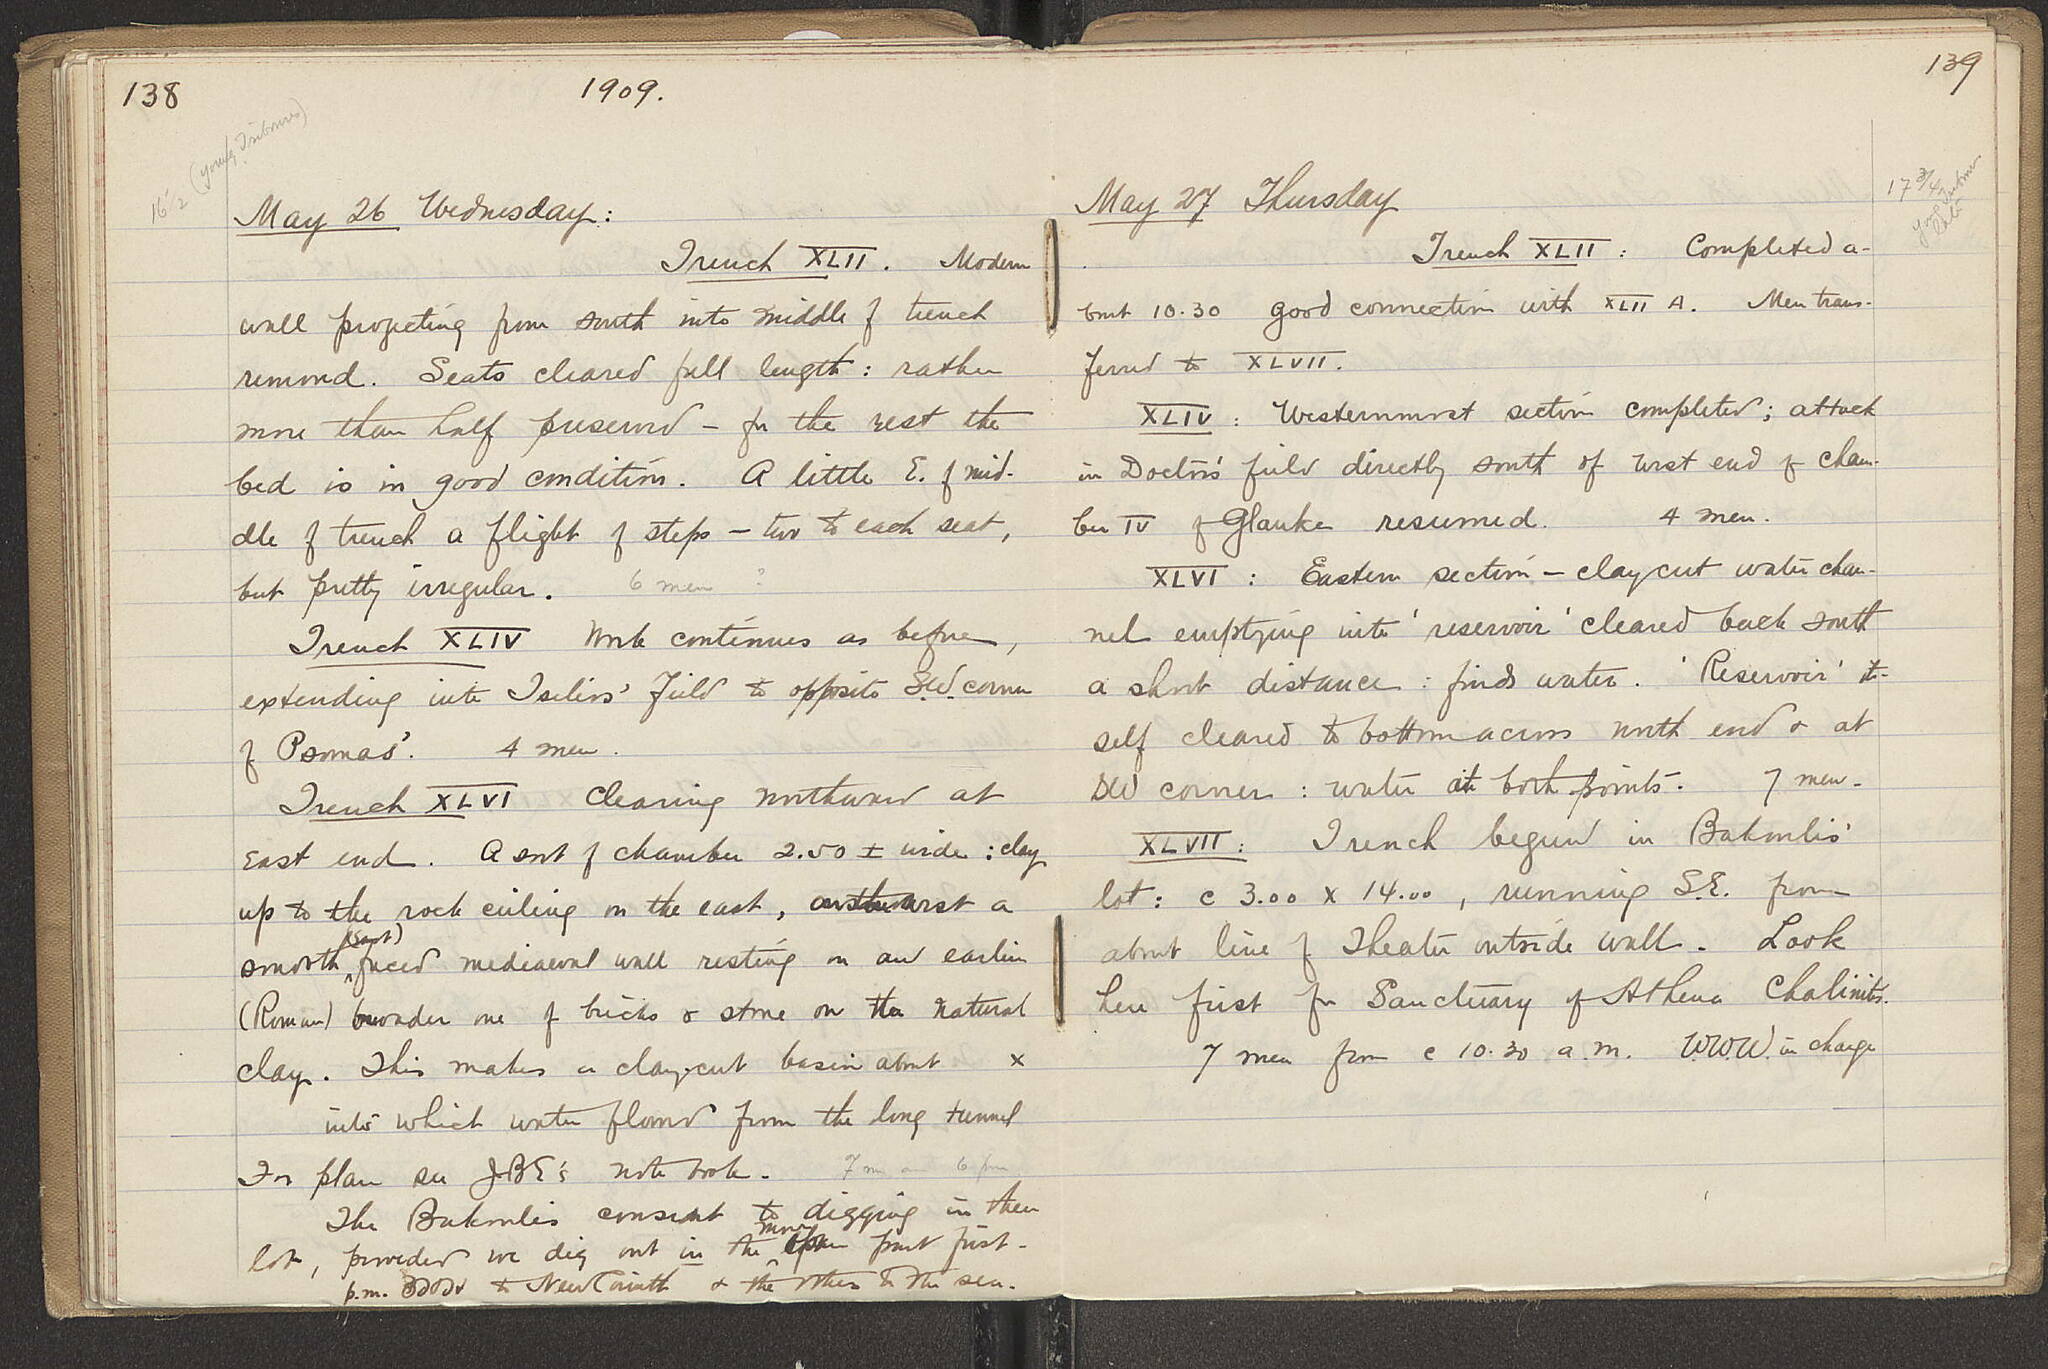 138
1909.
16 1/2 (young Tribunes)
May 26 Wednesday:
Trench XLII. Modern
wall projecting from south into middle of trench
removed. Seats cleared full length: rather
more than half preserved – for the rest the
bed is in good condition. A little E. of mid-
dle of trench a flight of steps – two to each seat,
but pretty irregular. 6 men ?
Trench XLIV Work continues as before,
extending into Tselios' field to opposite S.W. corner
of Psomas'. 4 men.
Trench XLVI Clearing northward at
East end. A sort of chamber 2.50 ± wide: clay
up to the rock ceiling on the east, on the west a
smooth (East) faced mediaeval wall resting on an earlier
(Roman) broader one of bricks & stone on the natural
clay. This makes a clay-cut basin about x
into which water flowed from the long tunnel
For plan see JBE's note book. 7 6 pm
The Bakoulis consent to digging in their
lot, provided we dig out in the more open part first.
p.m. to New Corinth & the others to the sea.
139
17 3/4
May 27 Thursday
Trench XLII: Completed a-
bout 10.30 good connection with XLII A. Men trans-
ferred to XLVII.
XLIV: Westernmost section completed; attack
in Doctor's field directly south of west end of cham-
ber IV of Glauke resumed. 4 men.
XLVI: Eastern section – clay-cut water chan-
nel emptying into 'reservoir' cleared back south
a short distance: finds water. 'Reservoir' it-
self cleared to bottom across north end & at
SW corner: water at both points. 7 men.
XLVII: Trench begun in Bakoulis'
lot: c 3.00 x 14.00, running S.E. from
about line of Theater outside wall. Look
here first for Sanctuary of Athena Chalinitis.
7 men from c 10.30 a.m. W.W.W. in charge